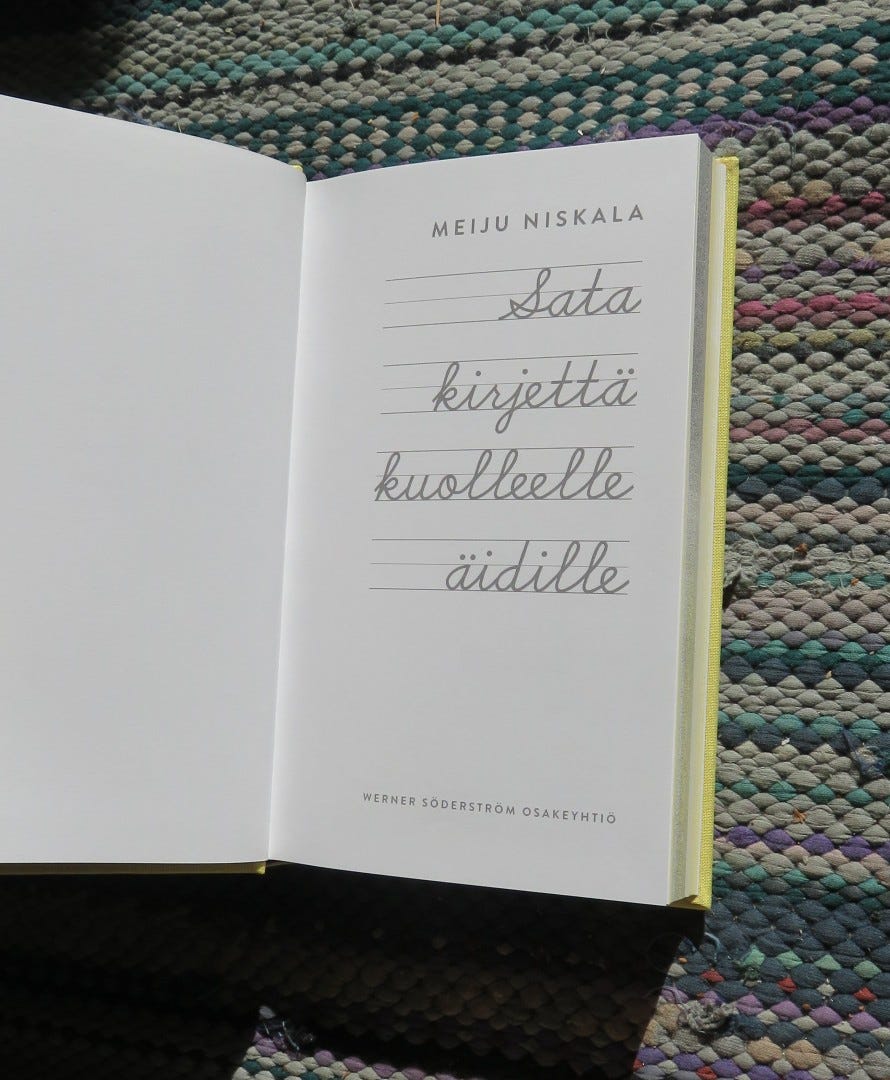 MEIJU NISKALA
Sata
kirjettä
kuolleelle
äidille
WERNER SÖDERSTRÖM OSAKEYHTIÖ